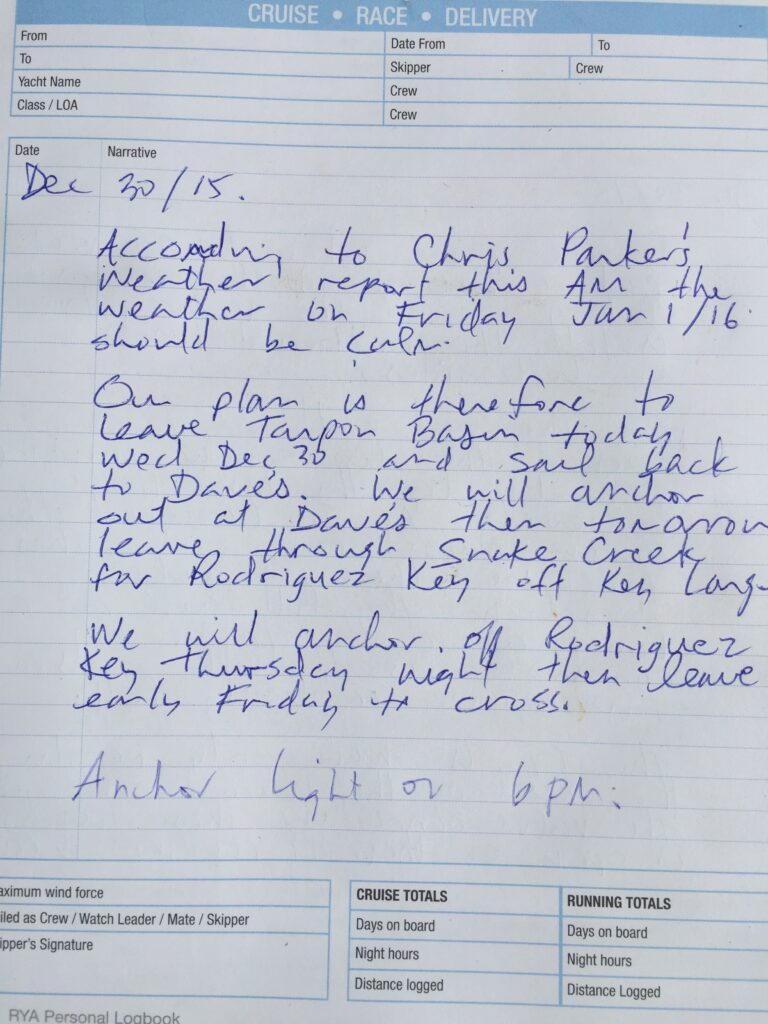 CRUISE • RACE • DELIVERY
From
Date From
To
To
Skipper
Crew
Yacht Name
Crew
Class / LOA
Crew
Date
Narrative
Dec 30/15.
According to Chris Parker's
Weather report this AM the
weather on Friday Jan 1/16
should be calm.
Our plan is therefore to
leave Tarpon Basin today
Wed Dec 30 and sail back
to Dave's. We will anchor
out at Dave's then tomorrow
leave through Snake Creek
for Rodriguez Key off Key Larg
We will anchor off Rodriguez
Key Thursday night then leave
early Friday to cross.
Anchor light on 6 pm.
aximum wind force
iled as Crew / Watch Leader / Mate / Skipper
ipper's Signature
CRUISE TOTALS
Days on board
Night hours
Distance logged
RUNNING TOTALS
Days on board
Night hours
Distance Logged
RYA Personal Logbook